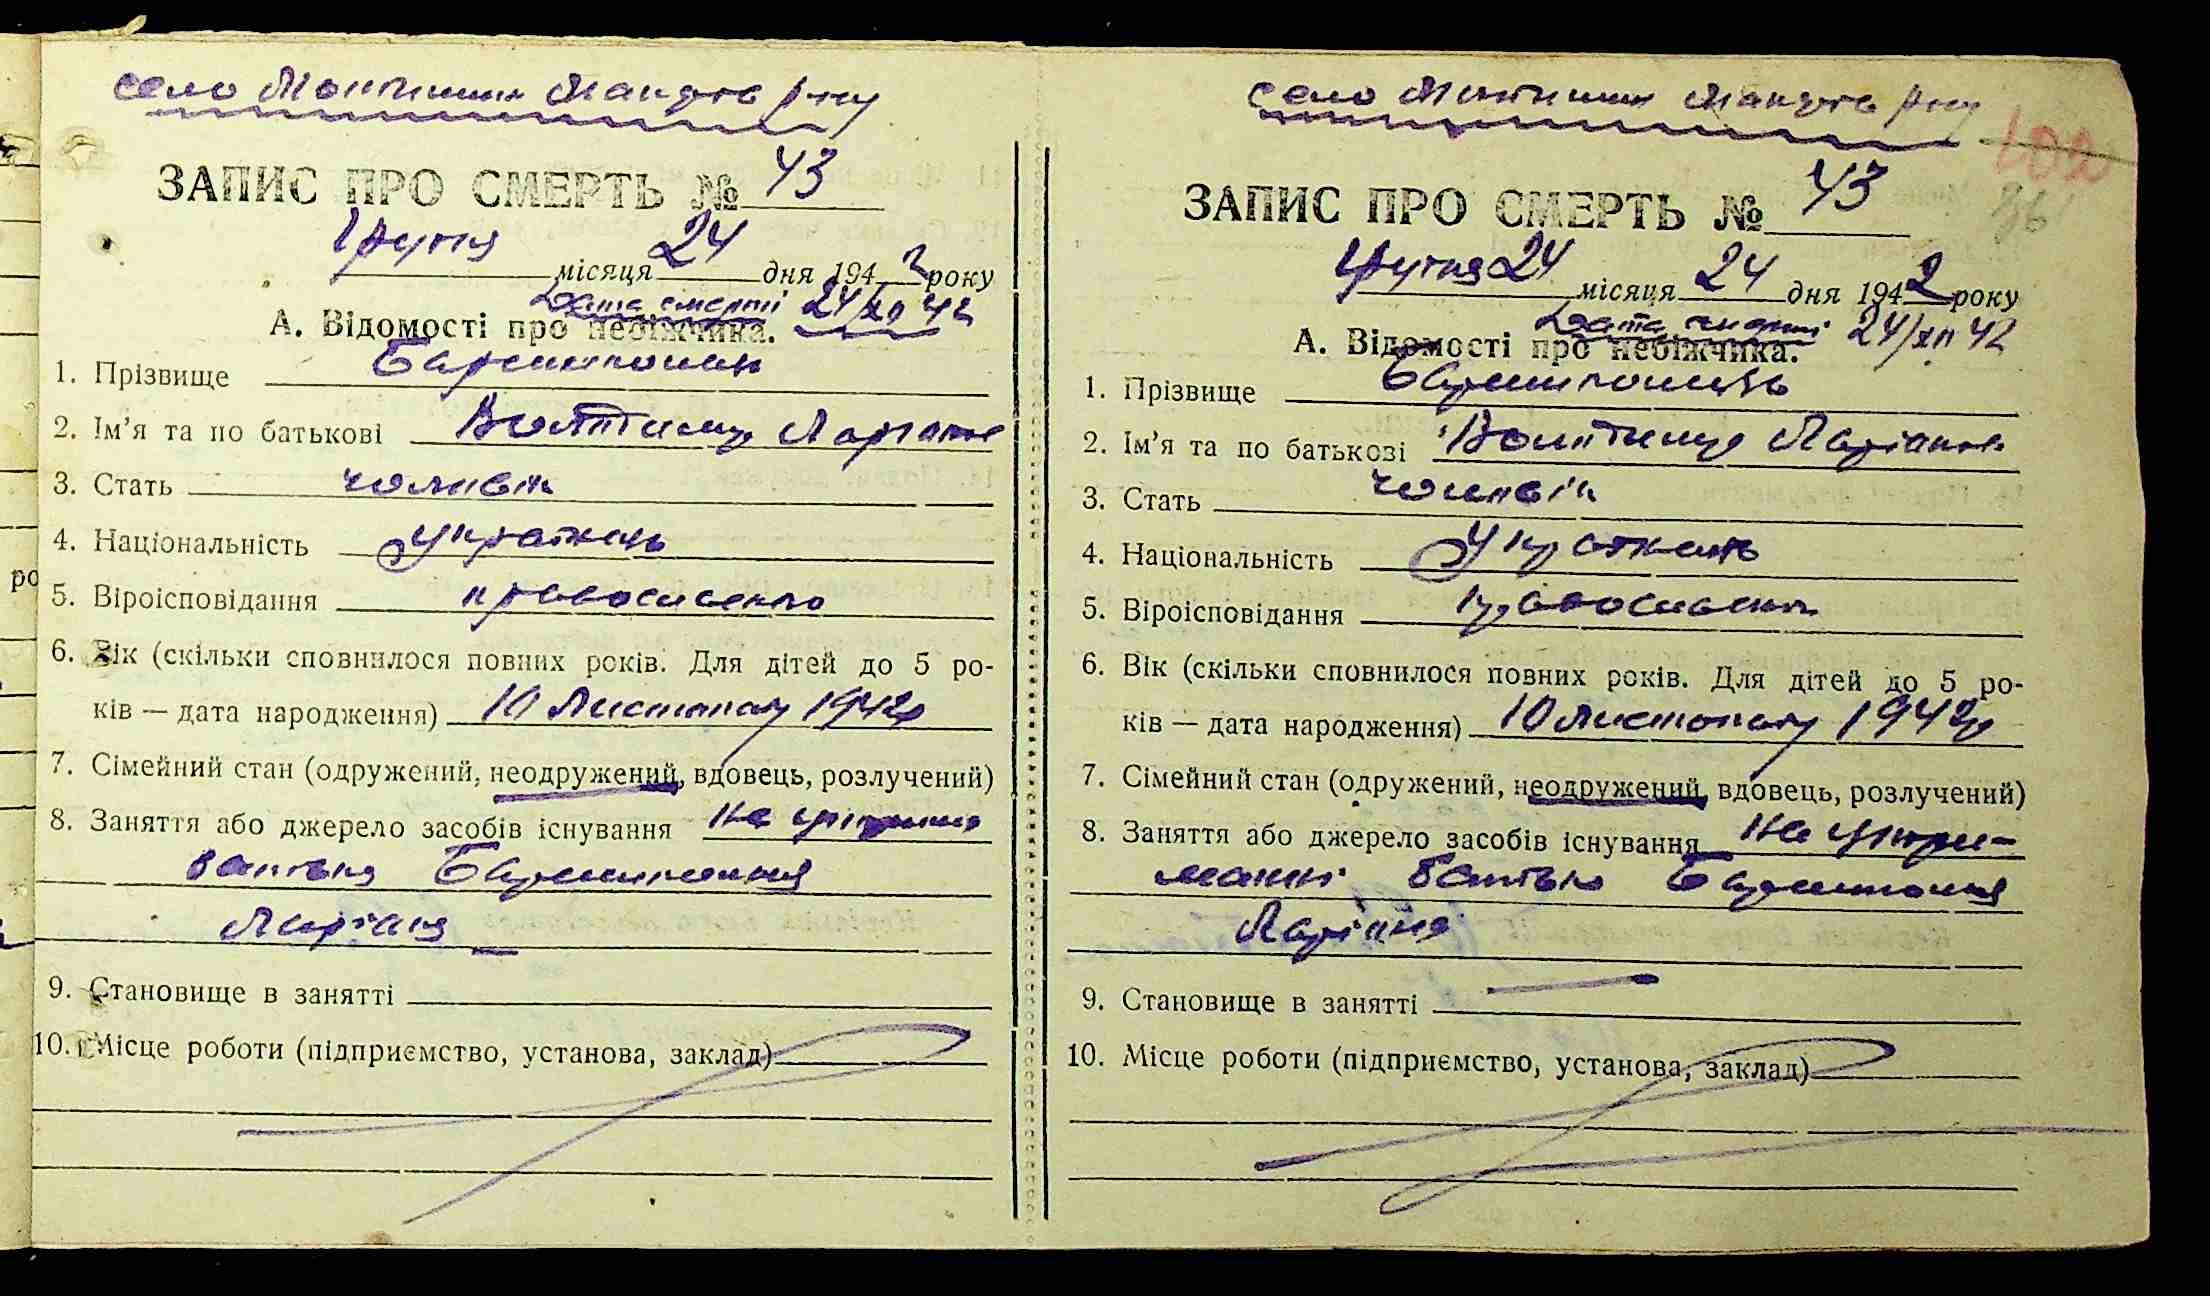 село
ЗАПИС ПРО СМЕРТЬ № 43
Грудня місяця 24 дня 1942 року
Дата смерті 24/XII 42
А. Відомості про небіжчика.
1. Прізвище
2. Ім'я та по батькові
3. Стать чоловік
4. Національність Українець
5. Віроісповідання православно
6. Вік (скільки сповнилося повних років. Для дітей до 5 ро-
ків — дата народження) 10 Листопаду 1942р
7. Сімейний стан (одружений, неодружений, вдовець, розлучений)
8. Заняття або джерело засобів існування на
батька
Ларіана
9. Становище в занятті
10. Місце роботи (підприємство, установа, заклад)
ро
село
102
36
ЗАПИС ПРО СМЕРТЬ № 43
Грудня 24 місяця 24 дня 1942 року
Дата смерті 24/XII 42
А. Відомості про небіжчика.
1. Прізвище
2. Ім'я та по батькові
3. Стать чоловік
4. Національність Українець
5. Віроісповідання православн
6. Вік (скільки сповнилося повних років. Для дітей до 5 ро-
ків — дата народження) 10 Листопаду 1942р
7. Сімейний стан (одружений, неодружений, вдовець, розлучений)
8. Заняття або джерело засобів існування на утри-
манні батька
Ларіана
9. Становище в занятті
10. Місце роботи (підприємство, установа, заклад)